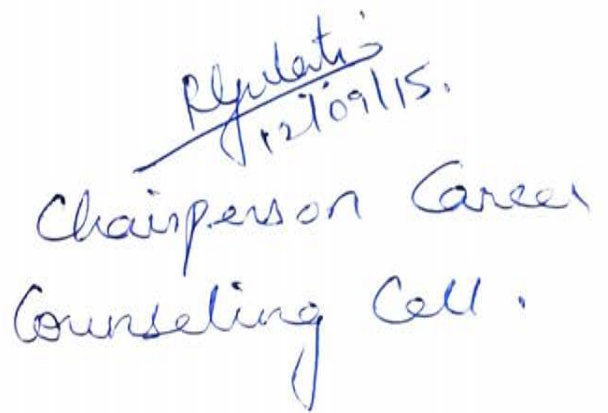 12/09/15.
Chairperson Career
Counseling Cell.